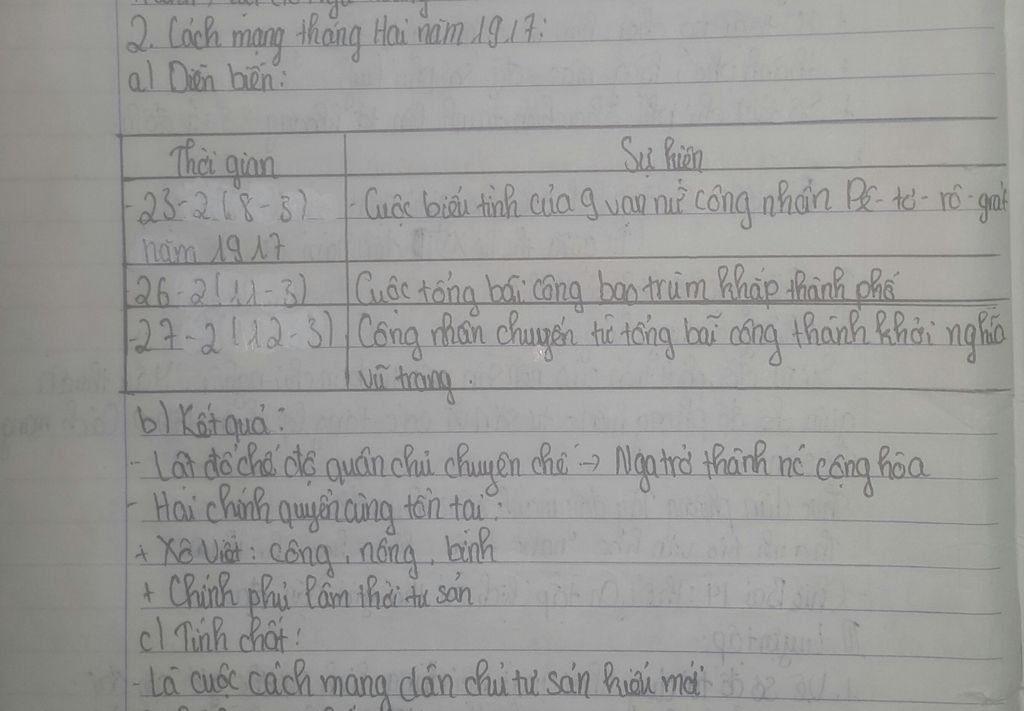 2. Cách mạng tháng Hai năm 1917:
a) Diễn biến:
Thời gian
Sự kiện
- 23-2 (8-3)
năm 1917
- Cuộc biểu tình của 9 vạn nữ công nhân Pê-tơ-rô-grát
- 26-2 (11-3)
Cuộc tổng bãi công bao trùm khắp thành phố
- 27-2 (12-3)
Công nhân chuyển từ tổng bãi công thành khởi nghĩa
vũ trang.
b) Kết quả:
- Lật đổ chế độ quân chủ chuyên chế → Nga trở thành nc cộng hòa
- Hai chính quyền cùng tồn tại:
+ Xô Viết: công, nông, binh
+ Chính phủ lâm thời tư sản
c) Tính chất:
- Là cuộc cách mạng dân chủ tư sản kiểu mới